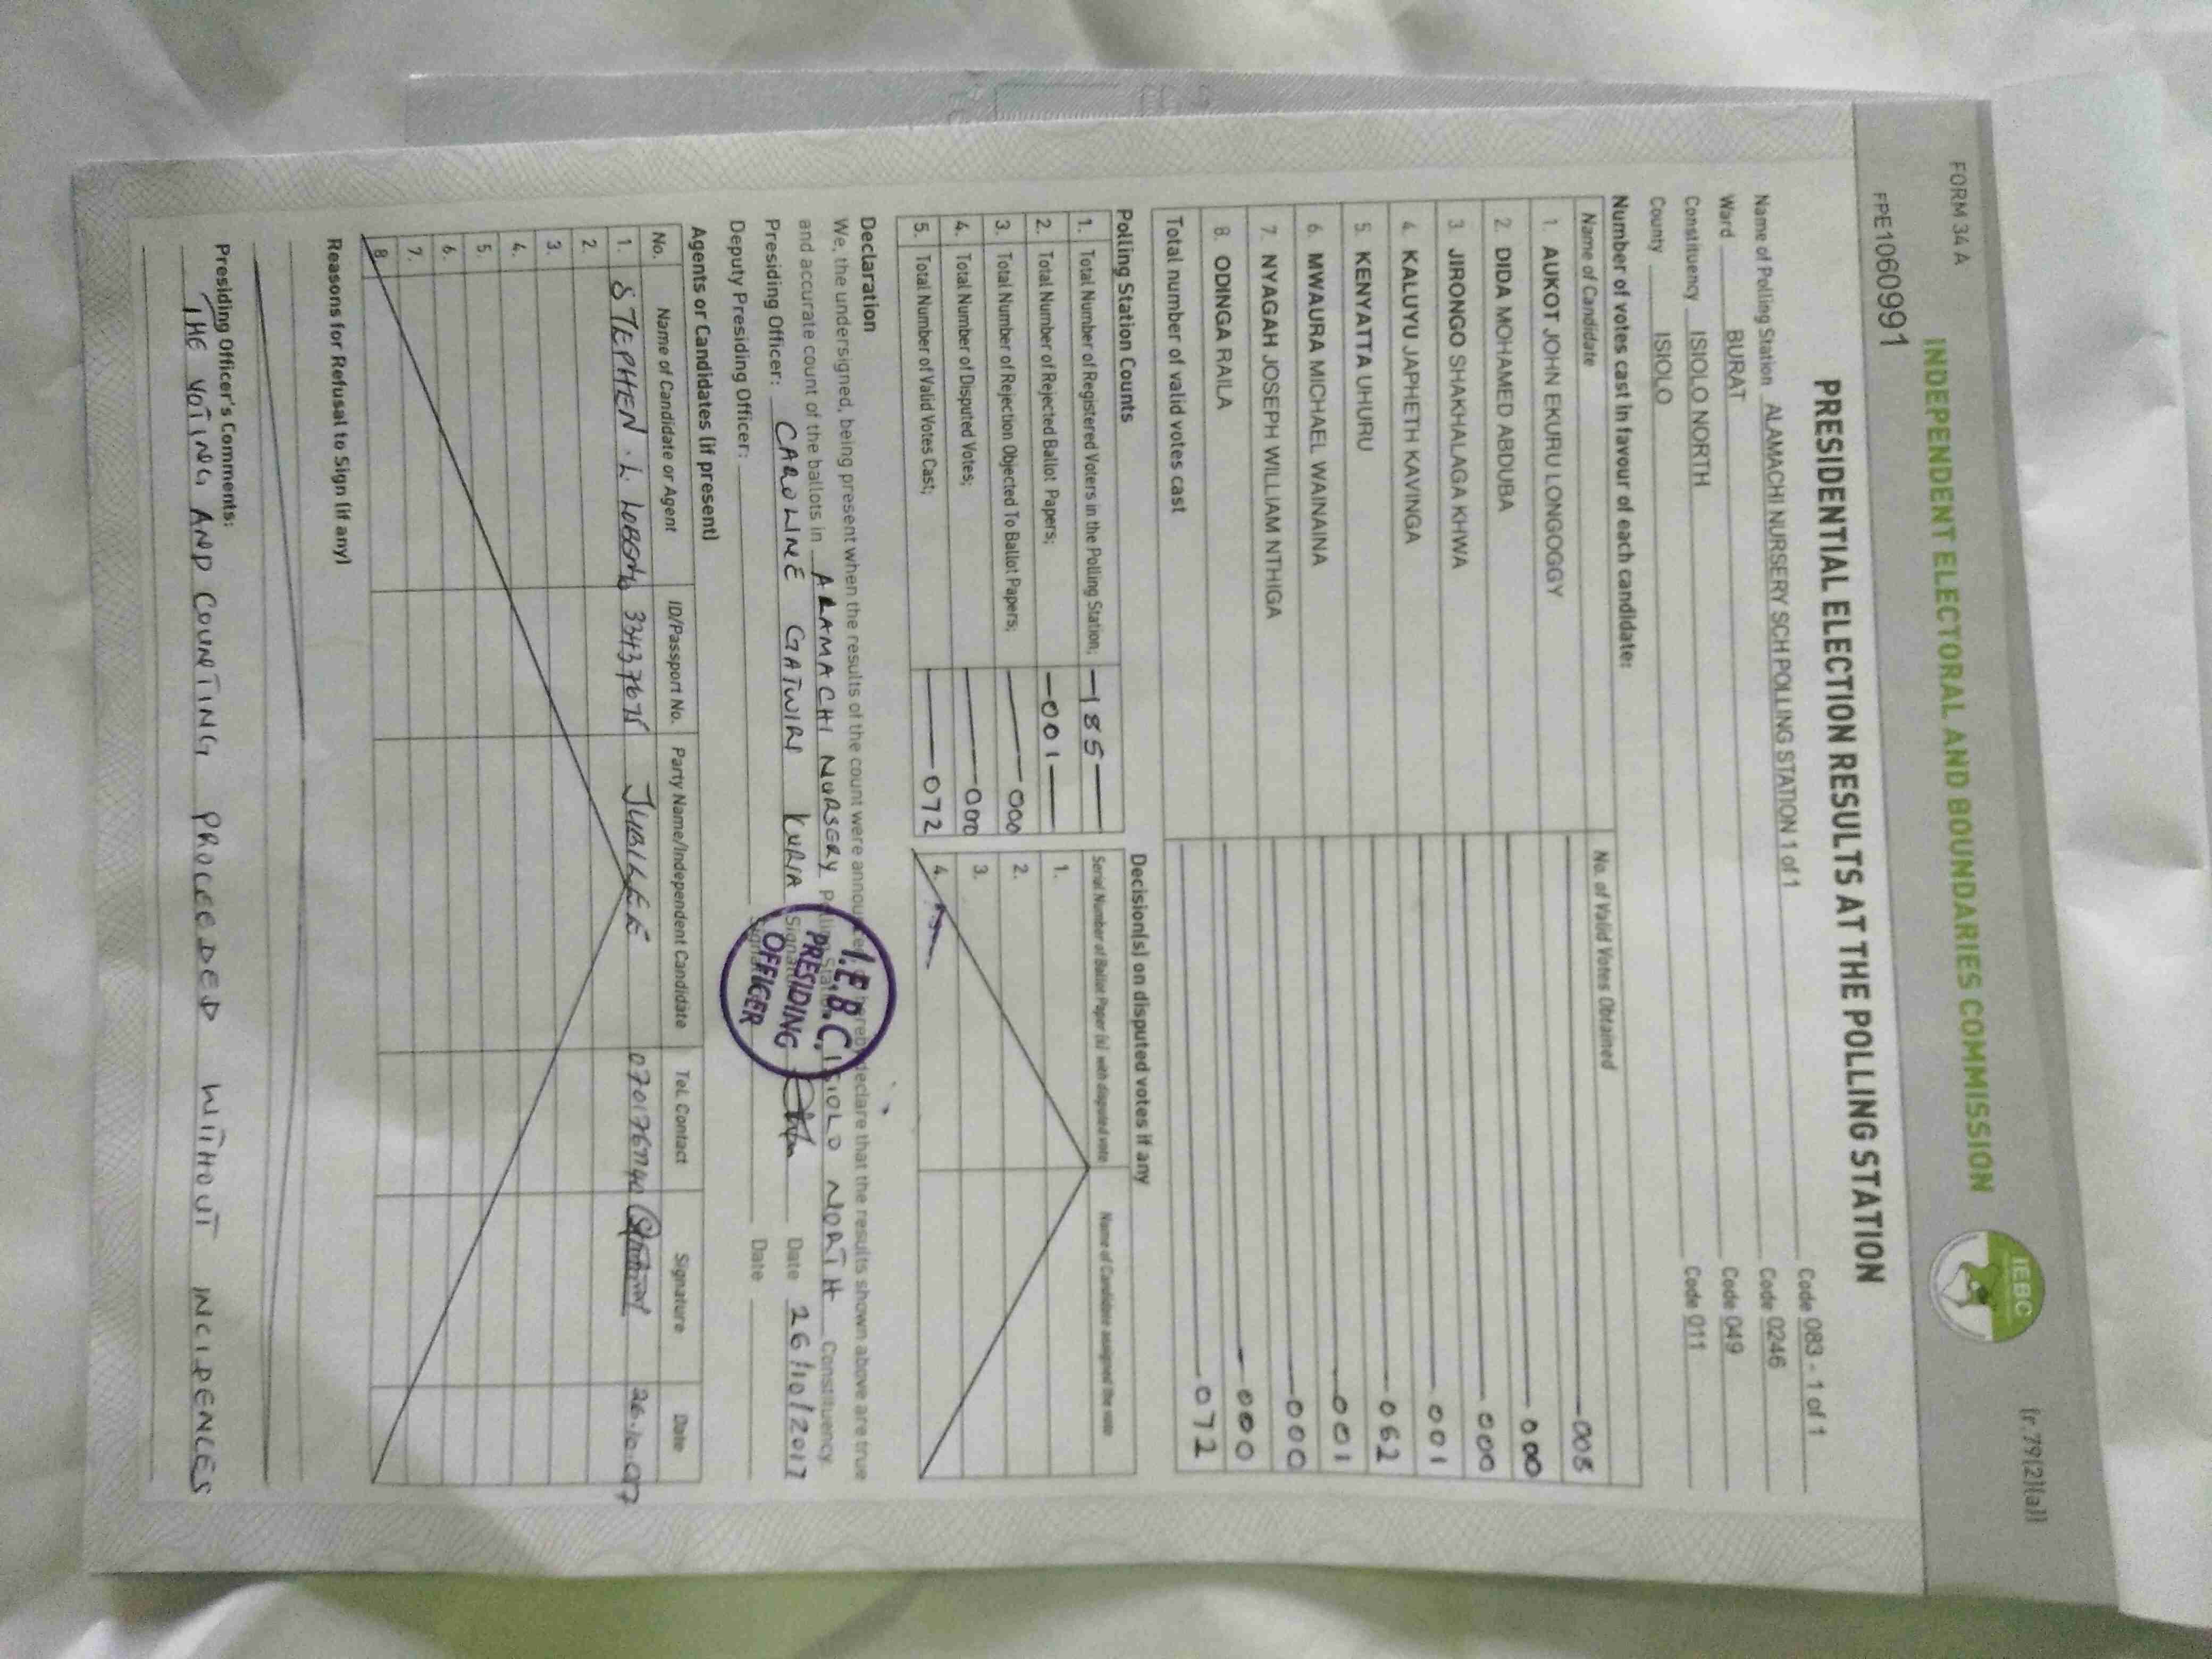 FORM 34 A
(r 79(2)(a))
INDEPENDENT ELECTORAL AND BOUNDARIES COMMISSION
IEBC
FPE1060991
PRESIDENTIAL ELECTION RESULTS AT THE POLLING STATION
Name of Polling Station ALAMACHI NURSERY SCH POLLING STATION 1 of 1 Code 083 - 1 of 1
Ward BURAT Code 0246
Constituency ISIOLO NORTH Code 049
County ISIOLO Code 011
Number of votes cast in favour of each candidate:
Name of Candidate No. of Valid Votes Obtained
1. AUKOT JOHN EKURU LONGOGGY 008
2. DIDA MOHAMED ABDUBA 000
3. JIRONGO SHAKHALAGA KHWA 000
4. KALUYU JAPHETH KAVINGA 001
5. KENYATTA UHURU 062
6. MWAURA MICHAEL WAINAINA 001
7. NYAGAH JOSEPH WILLIAM NTHIGA 000
8. ODINGA RAILA 000
Total number of valid votes cast 072
Polling Station Counts
1. Total Number of Registered Voters in the Polling Station; 185
2. Total Number of Rejected Ballot Papers; 001
3. Total Number of Rejection Objected To Ballot Papers; 000
4. Total Number of Disputed Votes; 000
5. Total Number of Valid Votes Cast; 072
Decision(s) on disputed votes if any
Serial Number of Ballot Paper (s) with disputed vote Name of Candidate assigned the vote
1.
2.
3.
4.
Declaration
We, the undersigned, being present when the results of the count were announced, do hereby declare that the results shown above are true
and accurate count of the ballots in ALAMACHI NURSERY Polling Station ISIOLO NORTH Constituency.
Presiding Officer: CAROLINE GATWIRI KURIA Signature Date 26/10/2017
Deputy Presiding Officer: Signature Date
I.E.B.C.
PRESIDING
OFFICER
Agents or Candidates (if present)
No. Name of Candidate or Agent ID/Passport No. Party Name/Independent Candidate Tel. Contact Signature Date
1. STEPHEN . L. JUBILEE
2.
3.
4.
5.
6.
7.
8
Reasons for Refusal to Sign (if any)
Presiding Officer's Comments:
THE VOTING AND COUNTING PROCEEDED WITHOUT INCIDENCES